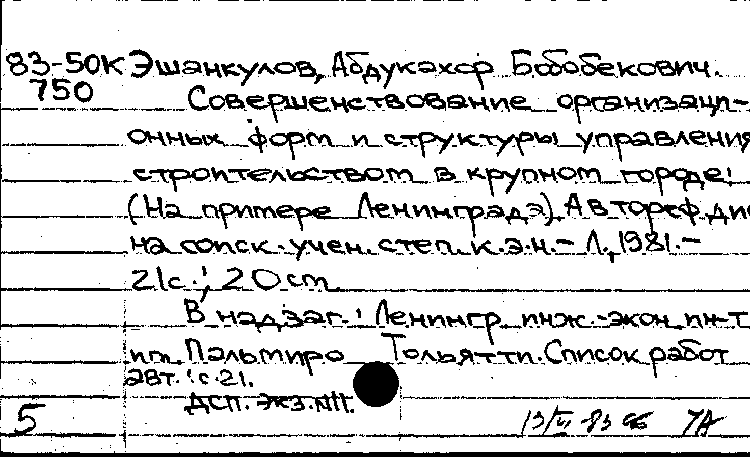 83-50К Эшанкулов, Абдукахор Бобобекович.
750 Совершенствование организаци-
онных форм и структуры управления
строительством в крупном городе:
(На примере Ленинграда). Автореф. дис
на соиск. учен. степ. к.э.н. – Л., 1981. –
21с.; 20 см.
В надзаг.: Ленингр. инж.-экон. ин-т
им. Пальмиро Тольятти. Список работ
авт.: с. 21.
ДСП. Экз. №11.
5 13/VI-83 7А